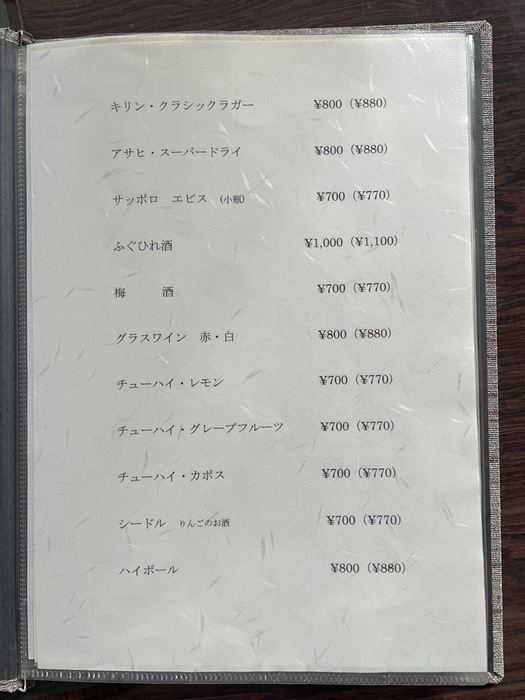 キリン・クラシックラガー ¥800（¥880）
アサヒ・スーパードライ ¥800（¥880）
サッポロ　エビス （小瓶） ¥700（¥770）
ふぐひれ酒 ¥1,000（¥1,100）
梅　　　酒 ¥700（¥770）
グラスワイン　赤・白 ¥800（¥880）
チューハイ・レモン ¥700（¥770）
チューハイ・グレープフルーツ ¥700（¥770）
チューハイ・カボス ¥700（¥770）
シードル　りんごのお酒 ¥700（¥770）
ハイボール ¥800（¥880）